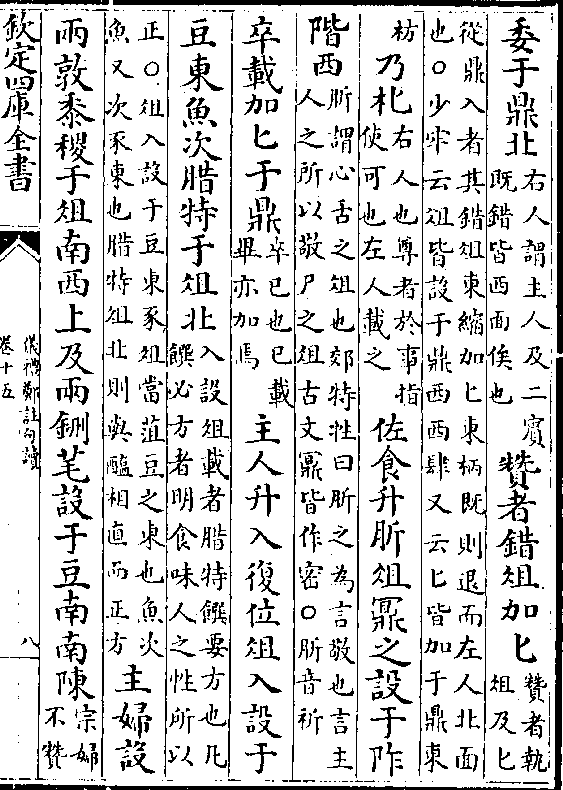 委于鼎北右人謂主人及二賓既錯皆西面俟也贊者錯俎加匕贊者執俎及匕
從鼎入者其錯俎東縮加匕東柄既則退而左人北面也○少牢云俎皆設于鼎西西肆又云匕皆加于鼎東
枋乃朼右人也尊者於事指使可也左人載之佐食升肵俎鼏之設于阼
階西肵謂心舌之俎也郊特牲曰肵之為言敬也言主人之所以敬尸之俎古文鼏皆作密○肵音祈
卒載加匕于鼎卒已也已載畢亦加焉主人升入復位俎入設于
豆東魚次腊特于俎北入設俎載者腊特饌要方也凡饌必方者明食味人之性所以
正○俎入設于豆東豕俎當菹豆之東也魚次魚又次豕東也腊特俎北則與醢相直而正方主婦設
兩敦黍稷于俎南西上及兩鉶芼設于豆南南陳宗婦不贊
欽定四庫全書
儀禮鄭註句讀
卷十五
八